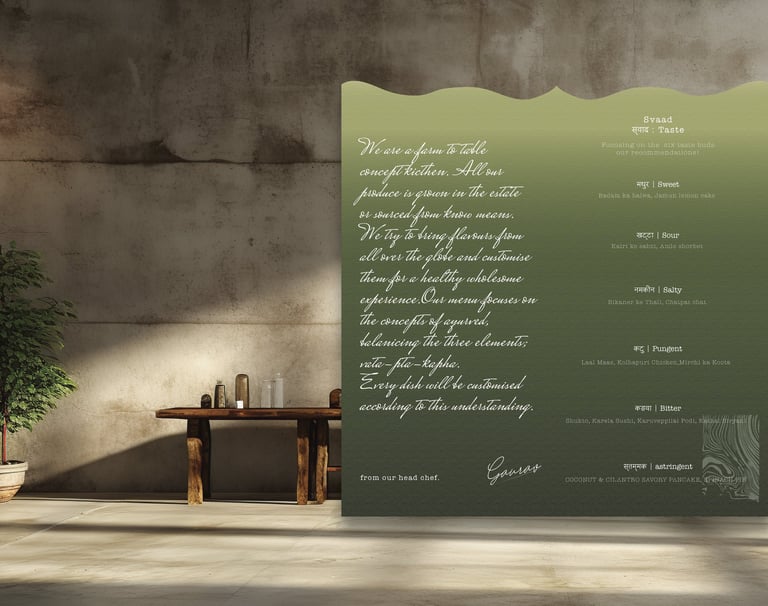 We are a farm to table
concept kicthen. All our
produce is grown in the estate
or sourced from know means.
We try to bring flavours from
all over the globe and customise
them for a healthy wholesome
experience.Our menu focuses on
the concepts of ayurved,
balanicing the three elements;
vata-pta-kapha.
Every dish will be customised
according to this understanding.
from our head chef.
Gaurav
Svaad
स्वाद : Taste
Focusing on the six taste buds
our recommendations!
मधुर | Sweet
Badam ka halwa, Jamun lemon cake
खट्टा | Sour
Kairi ke sabzi, Amle sherbet
नमकीन | Salty
Bikaner ke Thali, Chaipai chat
कटु | Pungent
Laal Maas, Kolhapuri Chicken,Mirchi ka Koota
कडवा | Bitter
Shukto, Karela Sushi, Karuveppilai Podi,
astringent
COCONUT & CILANTRO SAVORY PANCAKE,